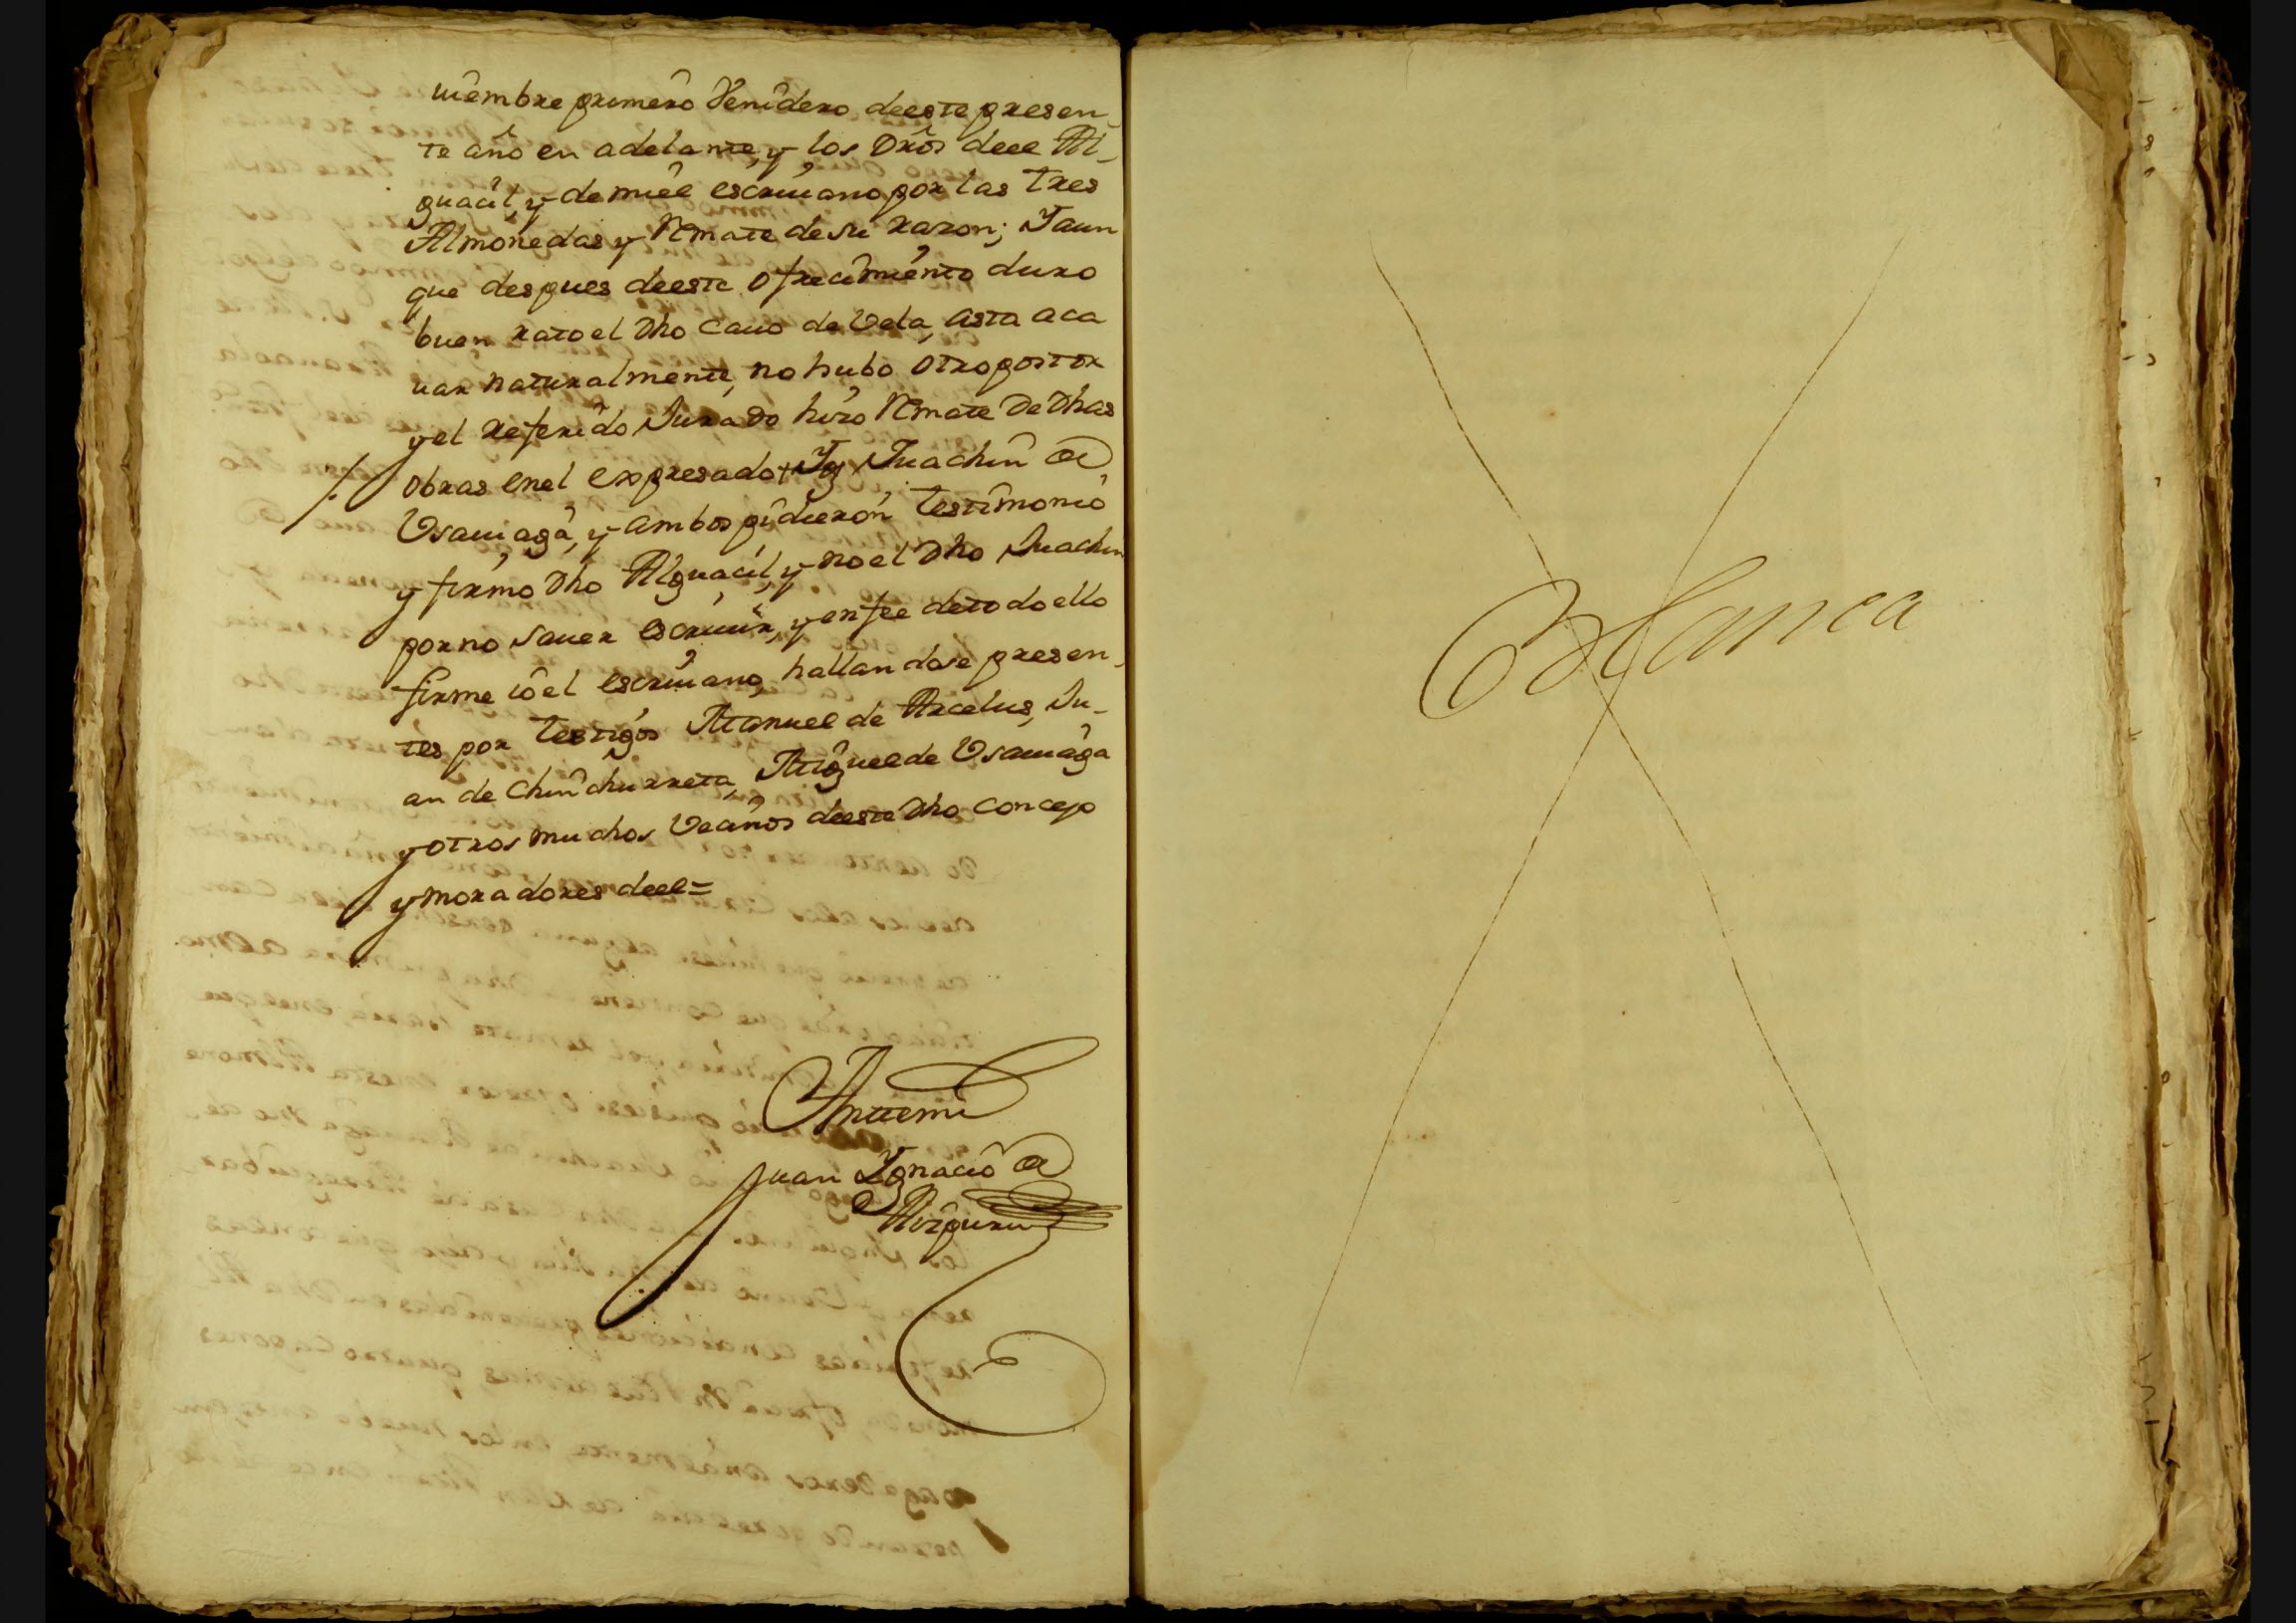 uiembre primero Venidero deeste presen-
te año en adelante, y los Dros deel Al-
guacil, y de miel escriuano por las tres
Almonedas y Remate desu razon; Yaun
que despues deeste ofrecimiento duro
buen rato el Dho cauo de Vela, asta aca
uar naturalmente, no hubo otro postor
y el referido Jurado hizo Remate De Dhas
obras enel expresado + Juachin de
Vsauiaga, y ambos pidieron testimonio
y firmo Dho Alguacil, y no el Dho Juachin
por no sauer escriuir, y en fee detodo ello
firme io el escriuano, hallandose presen-
tes por testigos Manuel de Arcelus, Ju-
an de Chinchurreta, Miguel de Vsauiaga
y otros muchos Vecinos deeste Dho Concejo
y moradores deel=
Anttemi
Juan Ygnacio de
Aizpuru
Blanca